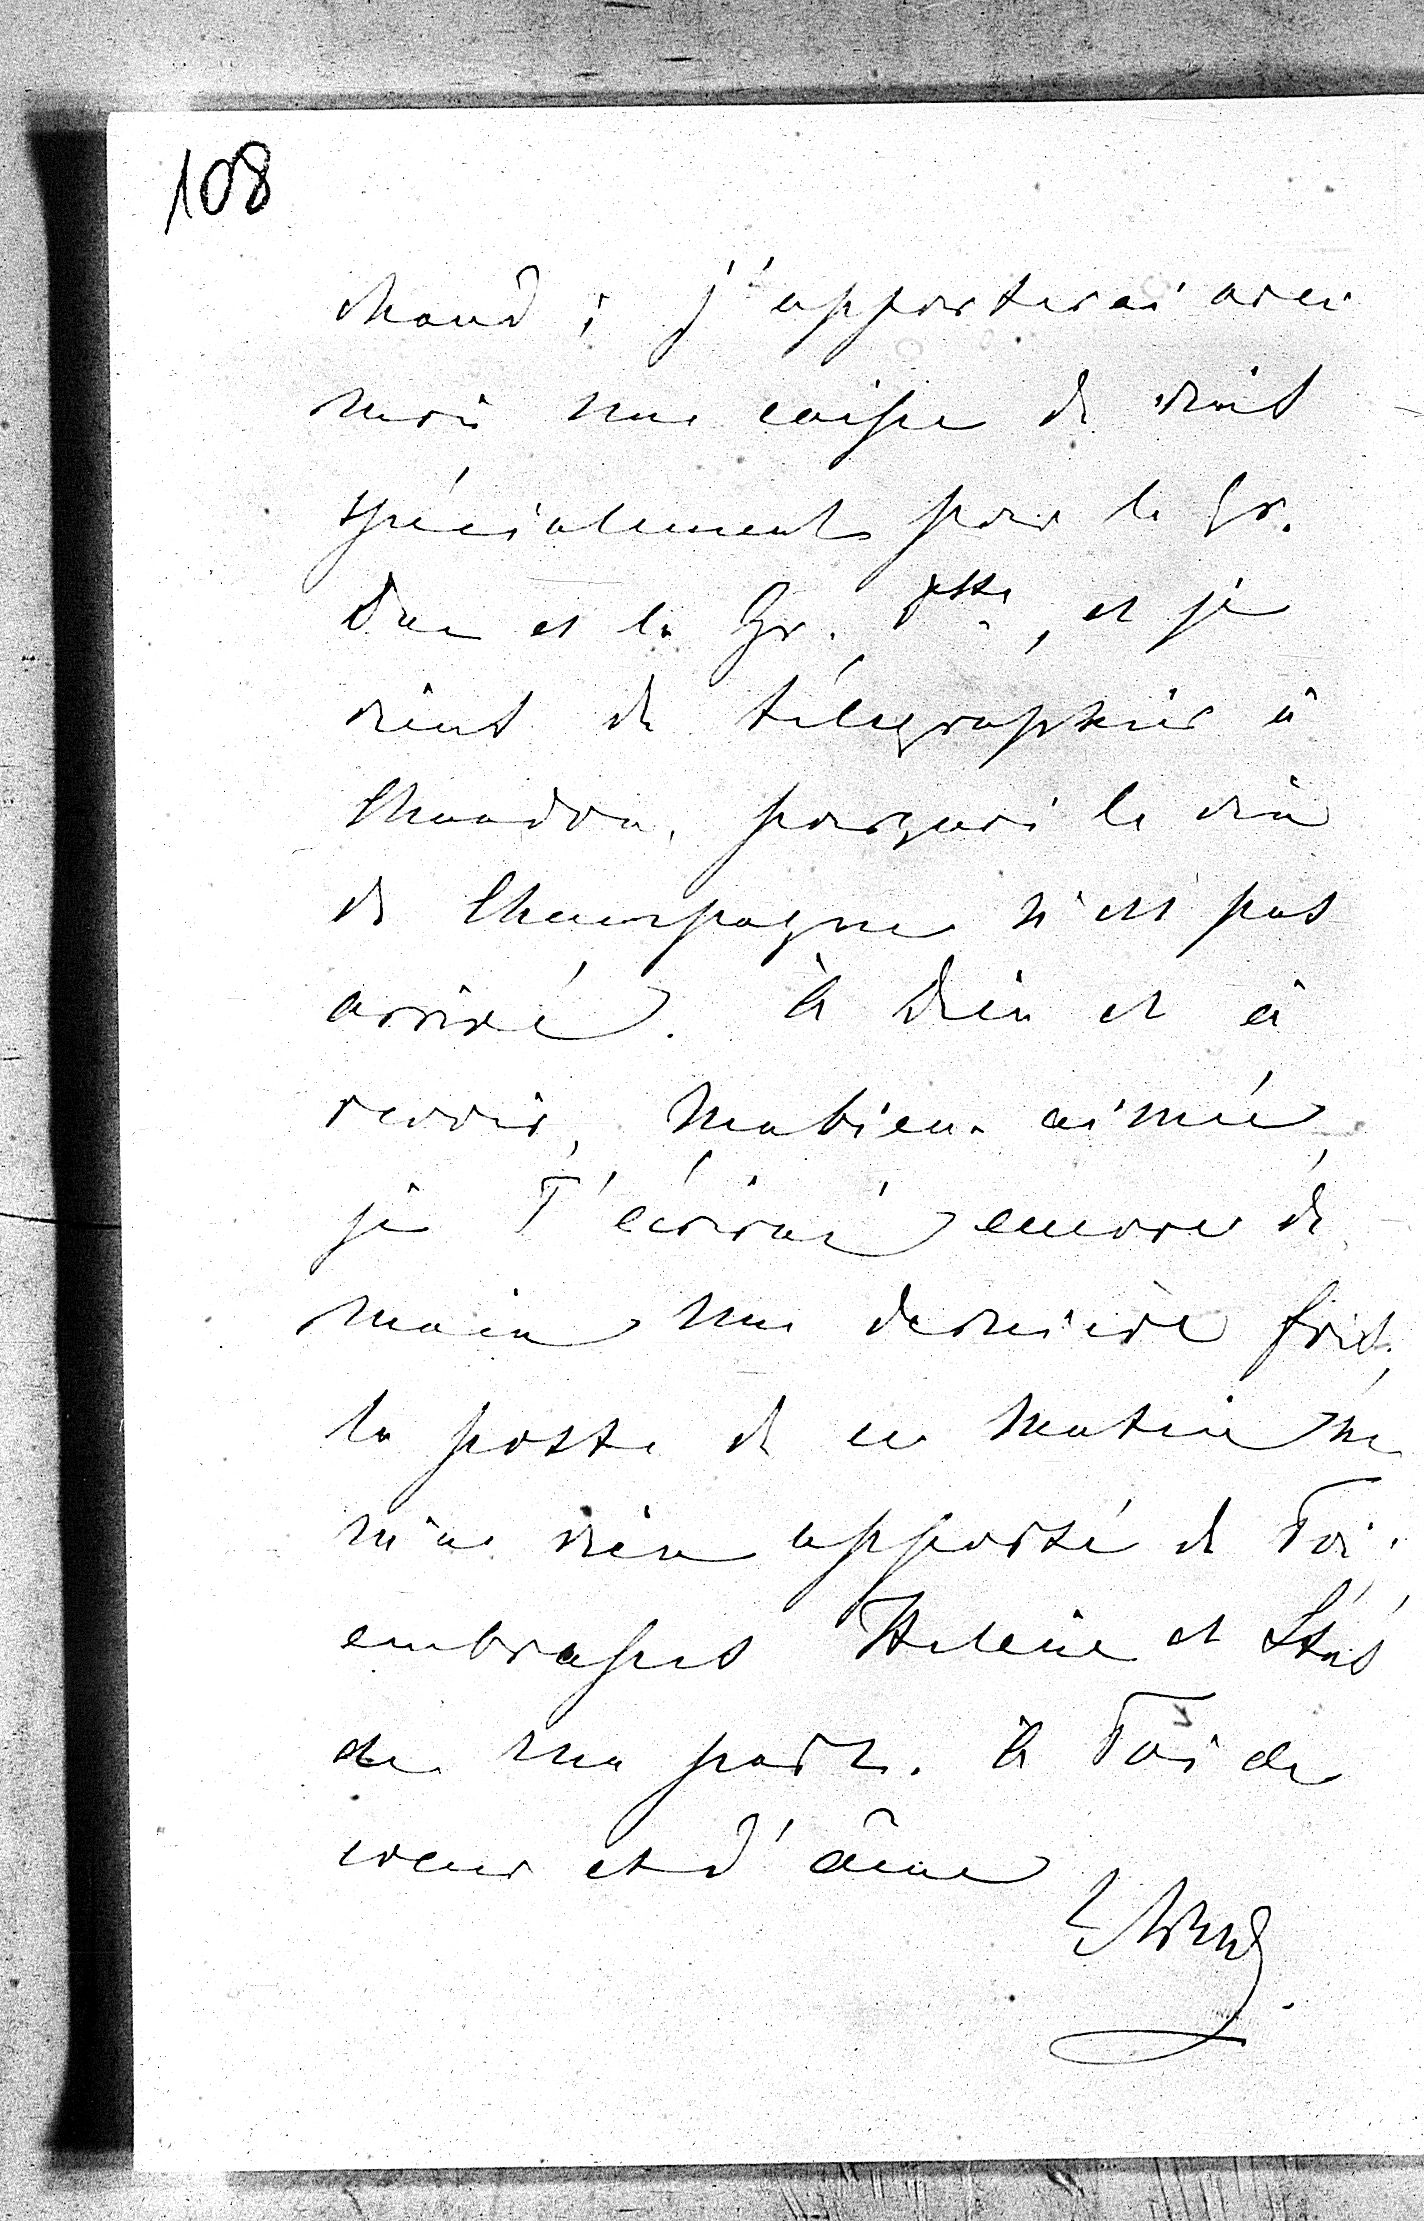 108
chaud ; j'apporterai avec
moi une caisse de vins
spécialement pour le Gr.
Duc et la Gr. Dsse, et je
viens de télégraphier à
Chandon, pourquoi le vin
de Champagne n'est pas
arrivé. à Dieu et à
revoir, ma bien-aimée,
je T'écrirai encore de
main une dernière fois;
la poste de ce matin ne
m'a rien apporté de Toi.
embrasses Hélène et Stás
de ma part. à Toi de
cœur et d'âme